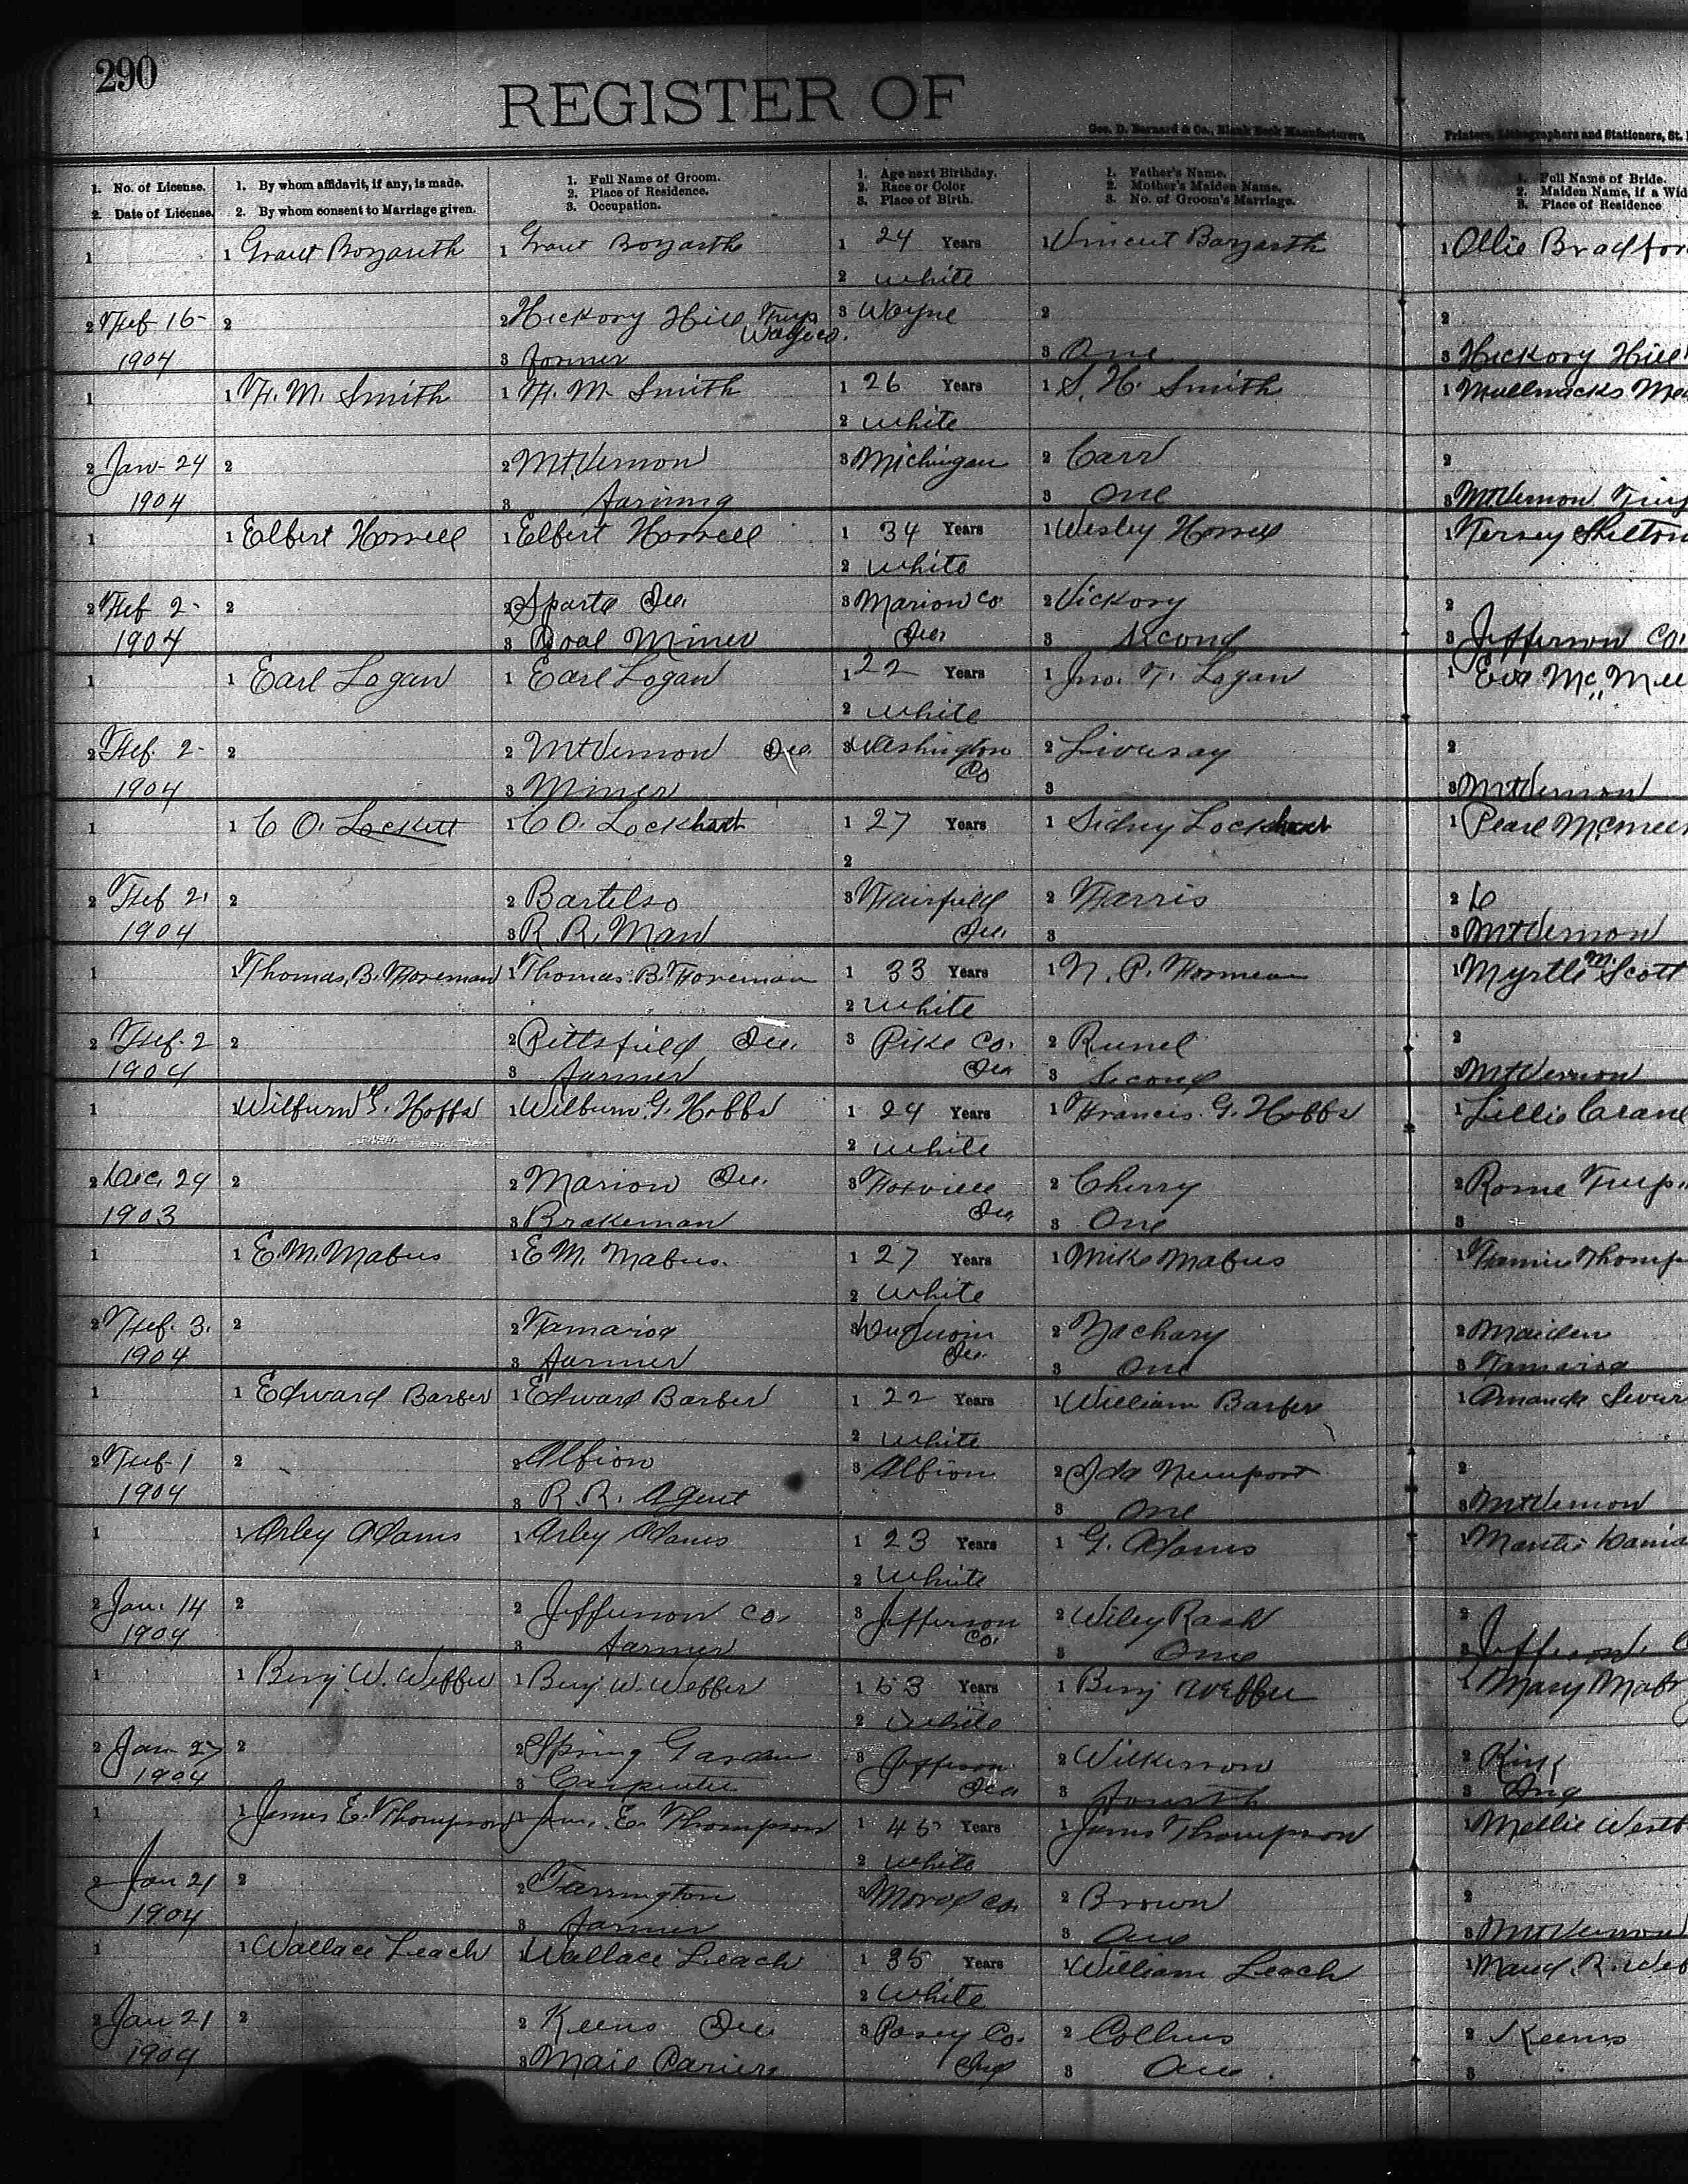 290
REGISTER OF
Geo. D. Barnard & Co., Blank Book Manufacturers,
Printers, Lithographers and Stationers, St.
1. No. of License.
2. Date of License.
1. By whom affidavit, if any, is made.
2. By whom consent to Marriage given.
1. Full Name of Groom.
2. Place of Residence.
3. Occupation.
1. Age next Birthday.
2. Race or Color
3. Place of Birth.
1. Father's Name.
2. Mother's Maiden Name.
3. No. of Groom's Marriage.
1. Full Name of Bride.
2. Maiden Name, if a Wid
3. Place of Residence
1 1 Grant Bozarth 1 Grant Bozarth 1 24 Years 1 Vincent Bozarth 1 Ollie Bradfor
2 white
2 Feb 16- 2 2 Hickory Hill Twp 3 Wayne 2 2
Wayne co.
1904 3 farmer 3 One 3 Hickory Hill
1 1 F. M. Smith 1 F. M. Smith 1 26 Years 1 S. H. Smith 1
2 white
2 Jan- 24 2 2 Mt Vernon 3 Michigan 2 Carr 2
1904 3 farming 3 One 3 Mt Vernon Twp
1 1 Elbert Howell 1 Elbert Howell 1 34 Years 1 Wesley Howell 1 Tersey Shelton
2 white
2 Feb 2- 2 2 Sparta Ill. 3 Marion Co 2 Vickory 2
1904 3 Coal Miner Ill. 3 Second 3 Jefferson Co.
1 1 Earl Logan 1 Earl Logan 1 22 Years 1 Jno. T. Logan 1 Eva Mc Mill
2 white
2 Feb. 2- 2 2 Mt Vernon Ill. 3 Washington 2 Livesay 2
Co
1904 3 Miner 3 3 Mt Vernon
1 1 C O. Lockett 1 C O. Lockhart 1 27 Years 1 Sidney Lockhart 1 Pearl
2
2 Feb 2. 2 2 Bartelso 3 Fairfield 2 Farris 2
1904 3 R. R. Man Ill. 3 3 Mt Vernon
1 1 Thomas B. Foreman 1 Thomas B. Foreman 1 33 Years 1 N. P. Foreman 1 Myrtle M. Scott
2 white
2 Feb. 2 2 2 Pittsfield Ill. 3 Pike Co. 2 2
1904 3 farmer Ill 3 Second 3 Mt Vernon
1 1 Wilburn G. Hobbs 1 Wilburn G. Hobbs 1 24 Years 1 Francis G. Hobbs 1 Lillie Crane
2 white
2 Dec. 24 2 2 Marion Ill. 3 Foxville 2 Cherry 2 Rome Twp.
1903 3 Brakeman Ill 3 One 3
1 1 E. M. Mabus 1 E M. Mabus. 1 27 Years 1 Mike Mabus 1 Fannie Thomp
2 white
2 Feb. 3. 2 2 Tamaroa 3 DuQuoin 2 Zachary 2 Maiden
1904 3 farmer Ill. 3 One 3 Tamaroa
1 1 Edward Barber 1 Edward Barber 1 22 Years 1 William Barber 1 Amanda
2 white
2 Feb 1 2 2 Albion 3 Albion 2 Ida Newport 2
1904 3 R. R. Agent 3 One 3 Mt Vernon
1 1 Arley Adams 1 Arley Adams 1 23 Years 1 G. Adams 1
2 White
2 Jan. 14 2 2 Jefferson Co. 3 Jefferson 2 Wiley Rash 2
1904 3 farmer Co. 3 One 3 Jefferson. C
1 1 Benj. W. Webber 1 Benj W. Webber 1 53 Years 1 Benj Webber 1 Mary
2 White
2 Jan- 27 2 2 Spring Garden 3 Jefferson 2 Wilkerson 2 King
1904 3 Carpenter Ill 3 fourth 3
1 1 James E. Thompson 1 Jas. E. Thompson 1 45 Years 1 James Thompson 1 Mellie West
2 white
2 Jan 21 2 2 Farrington 3 2 Brown 2
1904 3 farmer 3 One 3 Mt Vernon
1 1 Wallace Leach 1 Wallace Leach 1 35 Years 1 William Leach 1 Maud. R. Web
2 White
2 Jan 21 2 2 Keens Ill. 3 Posey Co. 2 Collins 2 Keens
1904 3 Mail Carier Ind 3 One 3